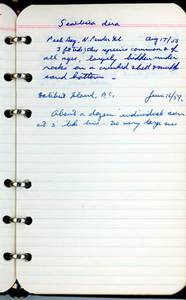 Searlesia dira
Peek Bay, N. Pender Isl. Aug 17/58
3 ft tide; this species common & of
all ages, largely hidden under
rocks on a crushed shell & mud
sand bottom.
Halibut Island, B.C. June 16/59.
About a dozen individuals seen
at 3' tide level. No very large ones